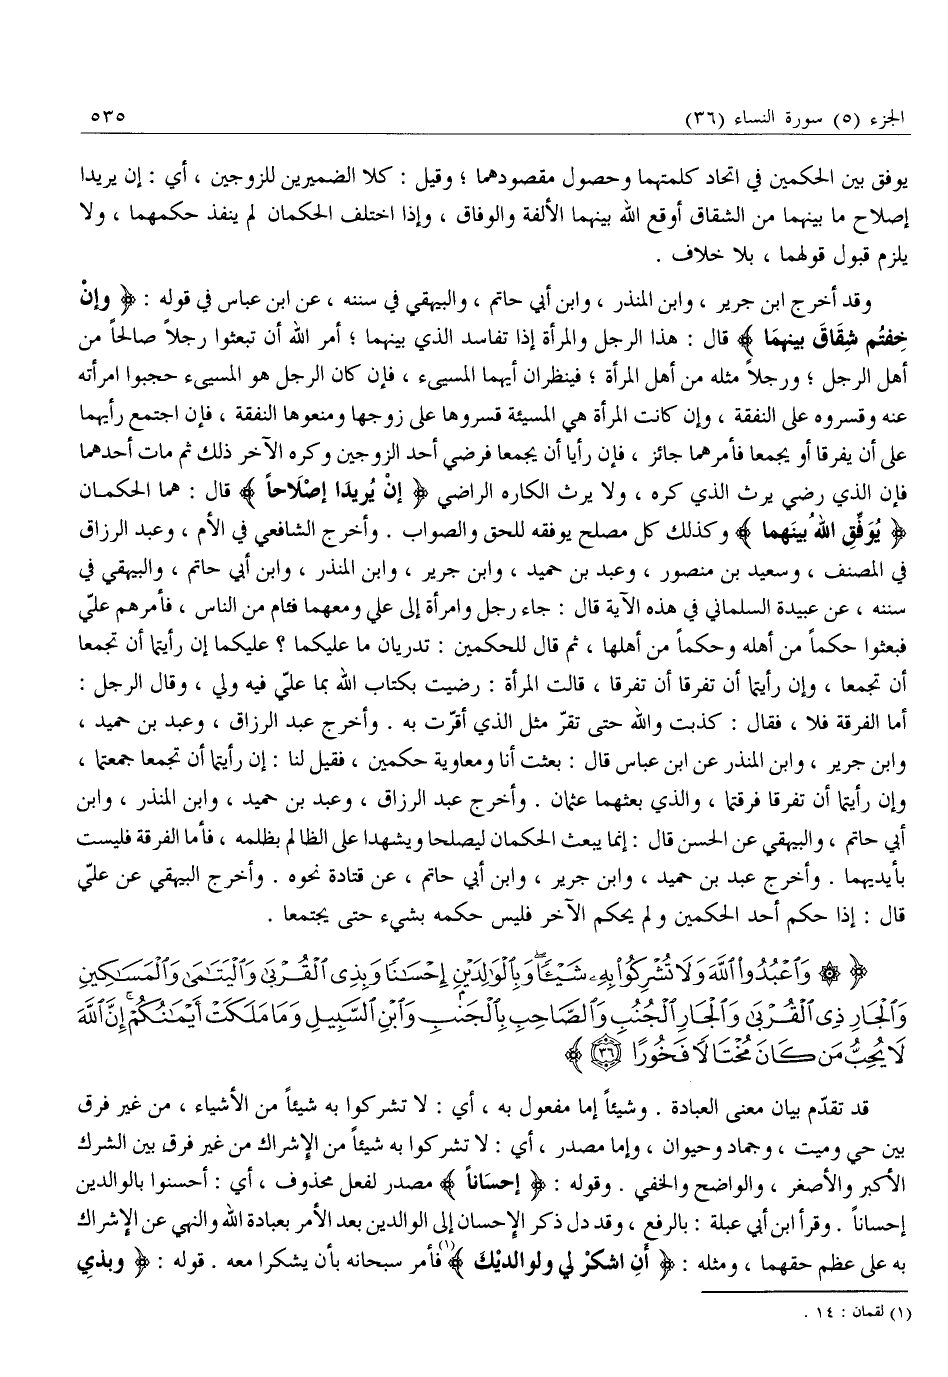 الجزء (٥) سورة النساء (٣٦) ٥٣٥
يوفق بين الحكمين في اتحاد كلمتهما وحصول مقصودهما ؛ وقيل : كلا الضميرين للزوجين ، أي : إن يريدا
إصلاح ما بينهما من الشقاق أوقع الله بينهما الألفة والوفاق ، وإذا اختلف الحكمان لم ينفذ حكمهما ، ولا
يلزم قبول قولهما ، بلا خلاف .
وقد أخرج ابن جرير ، وابن المنذر ، وابن أبي حاتم ، والبيهقي في سننه ، عن ابن عباس في قوله : ﴿ وإنْ
خِفتُم شِقَاقَ بينهمَا ﴾ قال : هذا الرجل والمرأة إذا تفاسد الذي بينهما ؛ أمر الله أن تبعثوا رجلاً صالحاً من
أهل الرجل ؛ ورجلاً مثله من أهل المرأة ؛ فينظران أيهما المسيىء ، فإن كان الرجل هو المسيىء حجبوا امرأته
عنه وقسروه على النفقة ، وإن كانت المرأة هي المسيئة قسروها على زوجها ومنعوها النفقة ، فإن اجتمع رأيهما
على أن يفرقا أو يجمعا فأمرهما جائز ، فإن رأيا أن يجمعا فرضي أحد الزوجين وكره الآخر ذلك ثم مات أحدهما
فإن الذي رضي يرث الذي كره ، ولا يرث الكاره الراضي ﴿ إنْ يُريدَا إصْلَاحاً ﴾ قال : هما الحكمان
﴿ يُوَفِّقِ اللهُ بينَهما ﴾ وكذلك كل مصلح يوفقه للحق والصواب . وأخرج الشافعي في الأم ، وعبد الرزاق
في المصنف ، وسعيد بن منصور ، وعبد بن حميد ، وابن جرير ، وابن المنذر ، وابن أبي حاتم ، والبيهقي في
سننه ، عن عبيدة السلماني في هذه الآية قال : جاء رجل وامرأة إلى علي ومعهما فئام من الناس ، فأمرهم عليّ
فبعثوا حكماً من أهله وحكماً من أهلها ، ثم قال للحكمين : تدريان ما عليكما ؟ عليكما إن رأيتما أن تجمعا
أن تجمعا ، وإن رأيتما أن تفرقا أن تفرقا ، قالت المرأة : رضيت بكتاب الله بما عليّ فيه ولي ، وقال الرجل :
أما الفرقة فلا ، فقال : كذبت والله حتى تقرّ مثل الذي أقرّت به . وأخرج عبد الرزاق ، وعبد بن حميد ،
وابن جرير ، وابن المنذر عن ابن عباس قال : بعثت أنا ومعاوية حكمين ، فقيل لنا : إن رأيتما أن تجمعا جمعتما ،
وإن رأيتما أن تفرقا فرقتما ، والذي بعثهما عثمان . وأخرج عبد الرزاق ، وعبد بن حميد ، وابن المنذر ، وابن
أبي حاتم ، والبيهقي عن الحسن قال : إنما يبعث الحكمان ليصلحا ويشهدا على الظالم بظلمه ، فأما الفرقة فليست
بأيديهما . وأخرج عبد بن حميد ، وابن جرير ، وابن أبي حاتم ، عن قتادة نحوه . وأخرج البيهقي عن عليّ
قال : إذا حكم أحد الحكمين ولم يحكم الآخر فليس حكمه بشيء حتى يجتمعا .
﴿ ۞ وَاعْبُدُوا اللَّهَ وَلَا تُشْرِكُوا بِهِ شَيْئًا وَبِالْوَالِدَيْنِ إِحْسَانًا وَبِذِي الْقُرْبَى وَالْيَتَامَى وَالْمَسَاكِينِ
وَالْجَارِ ذِي الْقُرْبَى وَالْجَارِ الْجُنُبِ وَالصَّاحِبِ بِالْجَنبِ وَابْنِ السَّبِيلِ وَمَا مَلَكَتْ أَيْمَانُكُمْ إِنَّ اللَّهَ
لَا يُحِبُّ مَن كَانَ مُخْتَالًا فَخُورًا ٣٦ ﴾
قد تقدّم بيان معنى العبادة . وشيئاً إما مفعول به ، أي : لا تشركوا به شيئاً من الأشياء ، من غير فرق
بين حي وميت ، وجماد وحيوان ، وإما مصدر ، أي : لا تشركوا به شيئاً من الإشراك من غير فرق بين الشرك
الأكبر والأصغر ، والواضح والخفي . وقوله : ﴿ إحسَاناً ﴾ مصدر لفعل محذوف ، أي : أحسنوا بالوالدين
إحساناً . وقرأ ابن أبي عبلة : بالرفع ، وقد دل ذكر الإحسان إلى الوالدين بعد الأمر بعبادة الله والنهي عن الإشراك
به على عظم حقهما ، ومثله : ﴿ أَنِ اشكرْ لي ولوالديْكَ ﴾(١) فأمر سبحانه بأن يشكرا معه . قوله : ﴿ وبذي
(١) لقمان : ١٤ .